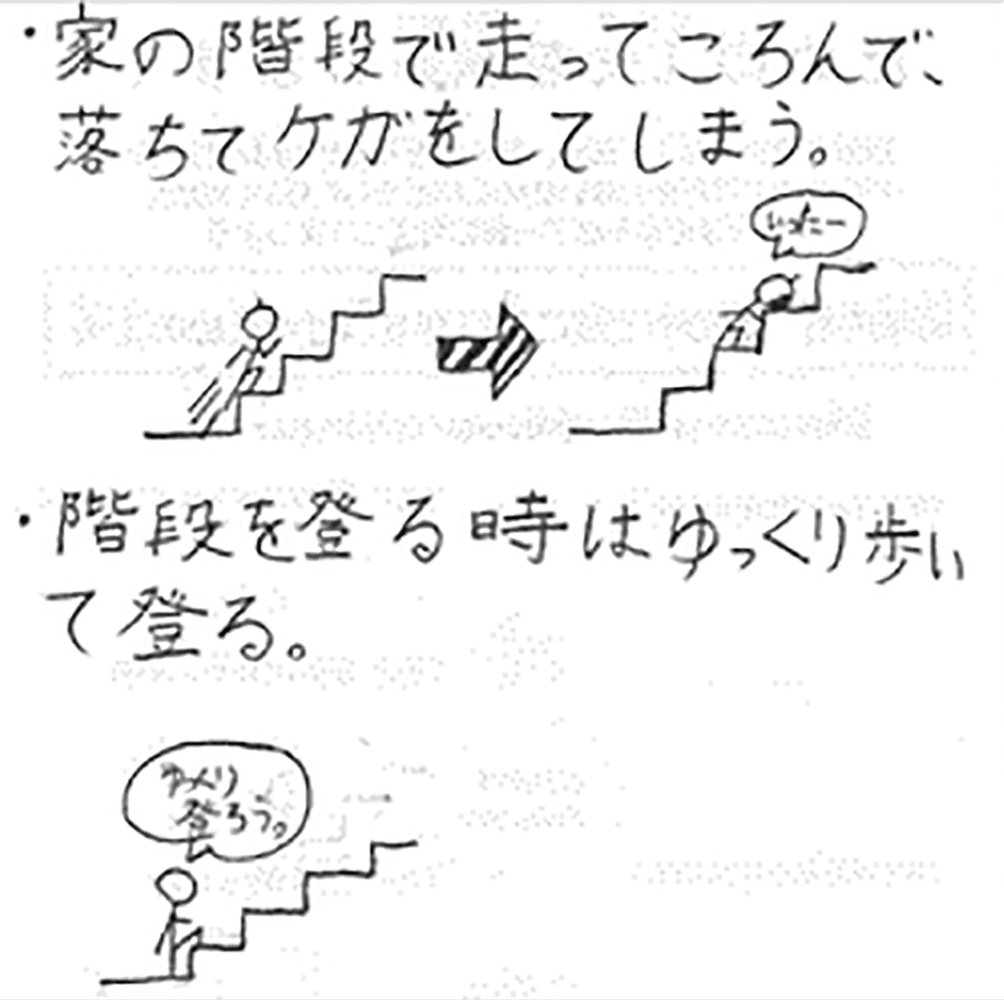 ・家の階段で走ってころんで、
落ちてケガをしてしまう。
いったー
・階段を登る時はゆっくり歩い
て登る。
ゆっくり
登ろう。